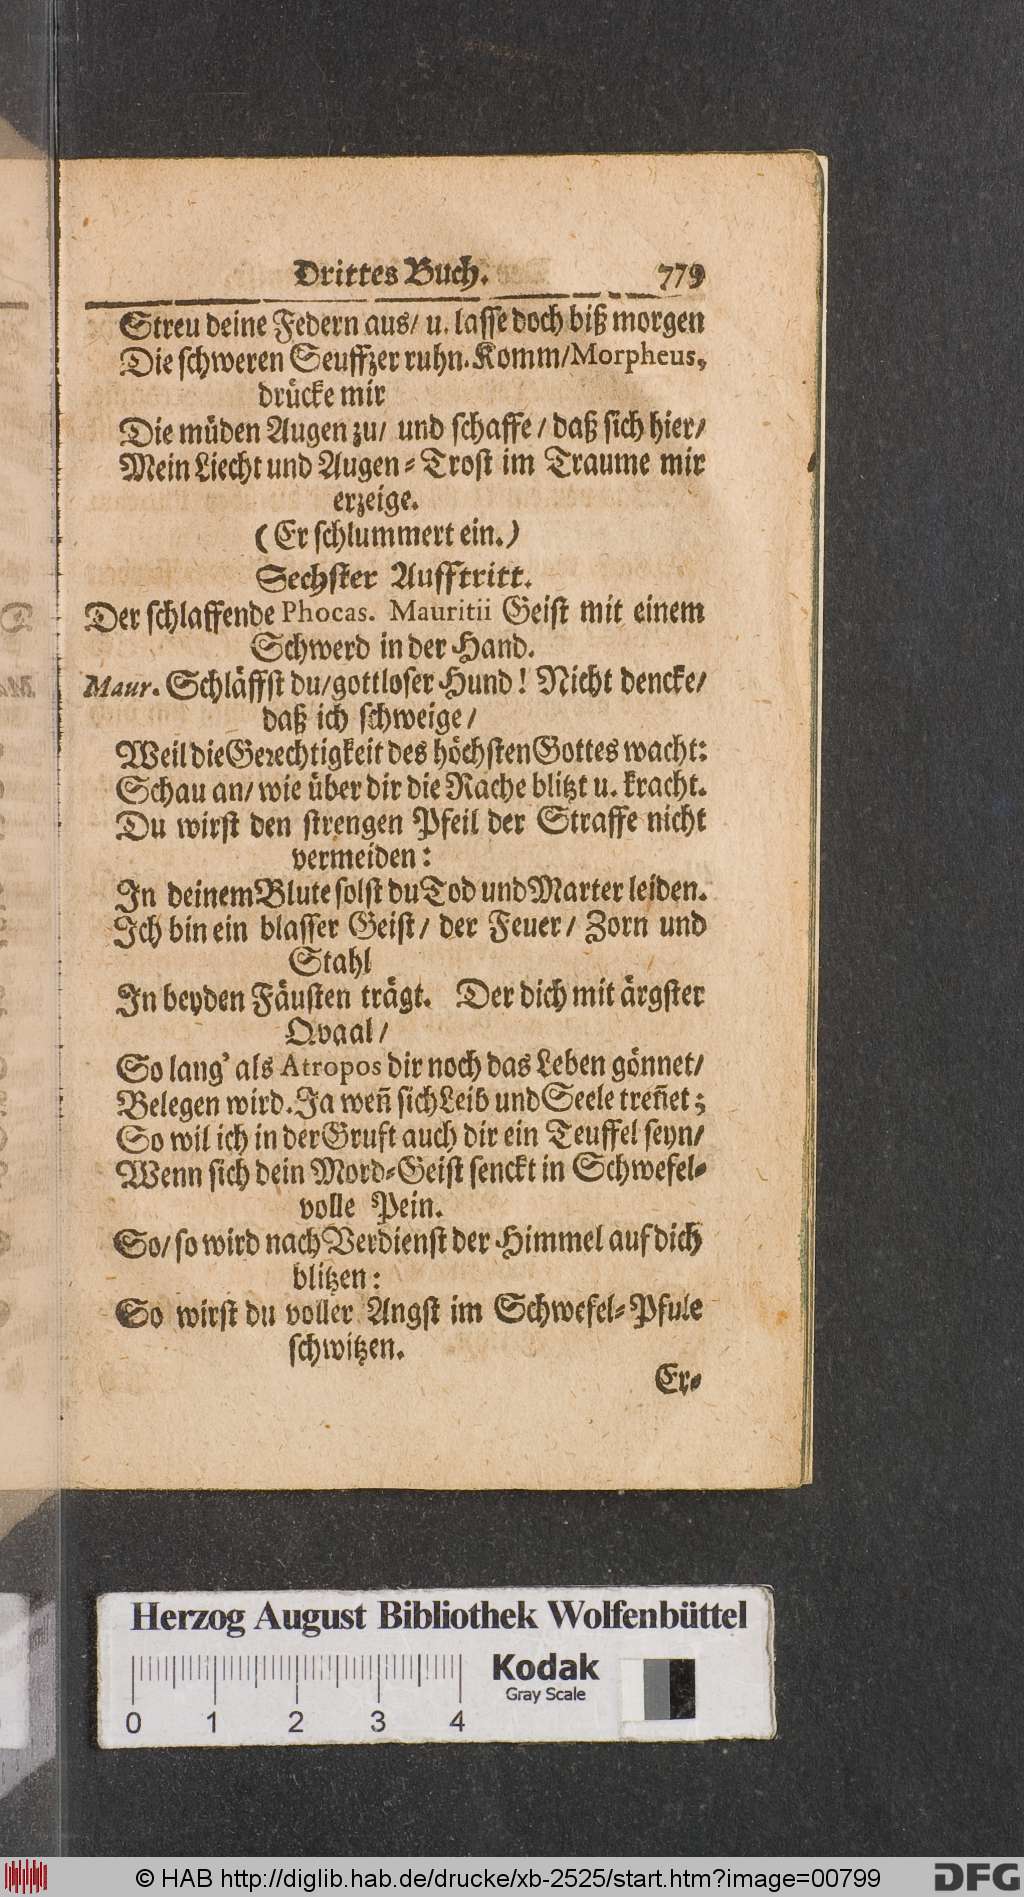 Drittes Buch. 779
Streu deine Federn aus/ u. lasse doch biß morgen
Die schweren Seuffzer ruhn. Komm/ Morpheus,
drücke mir
Die müden Augen zu/ und schaffe / daß sich hier/
Mein Liecht und Augen-Trost im Traume mir
erzeige.
(Er schlummert ein.)
Sechster Aufftritt.
Der schlaffende Phocas. Mauritii Geist mit einem
Schwerd in der Hand.
Maur. Schläffst du/ gottloser Hund! Nicht dencke/
daß ich schweige/
Weil die Gerechtigkeit des höchsten Gottes wacht:
Schau an/ wie über dir die Rache blitzt u. kracht.
Du wirst den strengen Pfeil der Straffe nicht
vermeiden:
In deinem Blute solst du Tod und Marter leiden.
Ich bin ein blasser Geist/ der Feuer/ Zorn und
Stahl
In beyden Fäusten trägt. Der dich mit ärgster
Qvaal/
So lang' als Atropos dir noch das Leben gönnet/
Belegen wird. Ja weñ sich Leib und Seele treñet;
So wil ich in der Gruft auch dir ein Teuffel seyn/
Wenn sich dein Mord-Geist senckt in Schwefel-
volle Pein.
So/ so wird nach Verdienst der Himmel auf dich
blitzen:
So wirst du voller Angst im Schwefel-Pfule
schwitzen.
Er-
Herzog August Bibliothek Wolfenbüttel
Kodak
Gray Scale
0 1 2 3 4
© HAB http://diglib.hab.de/drucke/xb-2525/start.htm?image=00799
DFG